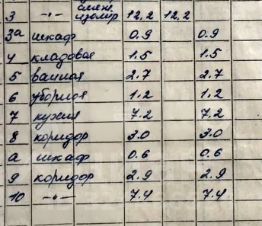 смежн.
3 -"- изолир 12,2 12,2
3а шкаф 0.9 0.9
4 кладовая 1.5 1.5
5 ванная 2.7 2.7
6 уборная 1.2 1.2
7 кухня 7.2 7.2
8 коридор 3.0 3.0
а шкаф 0.6 0.6
9 коридор 2.9 2.9
10 -"- 7.4 7.4